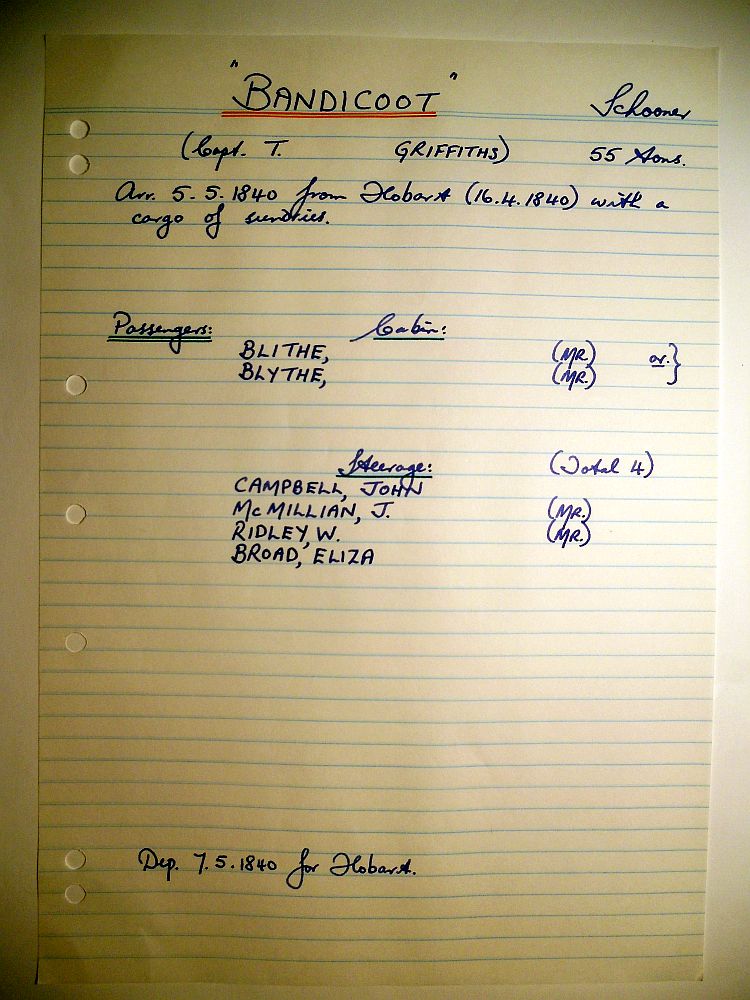 "BANDICOOT" Schooner
(Capt. T. GRIFFITHS) 55 tons.
Arr. 5.5.1840 from Hobart (16.4.1840) with a
cargo of sundries.
Passengers: Cabin:
BLITHE, (MR.) or }
BLYTHE, (MR.)
Steerage: (Total 4)
CAMPBELL, JOHN
McMILLIAN, J. (MR.)
RIDLEY, W. (MR.)
BROAD, ELIZA
Dep. 7.5.1840 for Hobart.